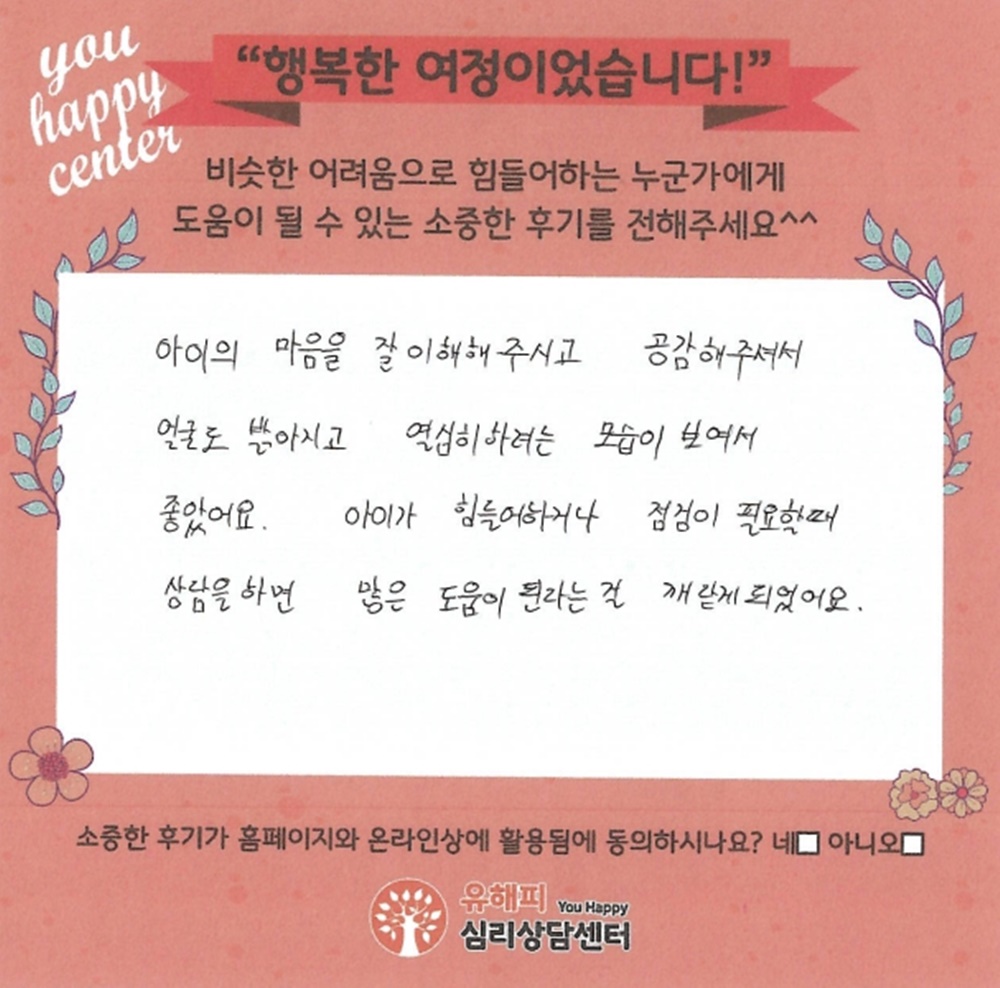 you
happy
center
“행복한 여정이었습니다!”
비슷한 어려움으로 힘들어하는 누군가에게
도움이 될 수 있는 소중한 후기를 전해주세요^^
아이의 마음을 잘 이해해 주시고 공감해주셔서
얼굴도 밝아지고 열심히하려는 모습이 보여서
좋았어요. 아이가 힘들어하거나 점검이 필요할때
상담을 하면 많은 도움이 된라는 걸 깨닫게 되었어요.
소중한 후기가 홈페이지와 온라인상에 활용됨에 동의하시나요? 네□ 아니오□
유해피 You Happy
심리상담센터